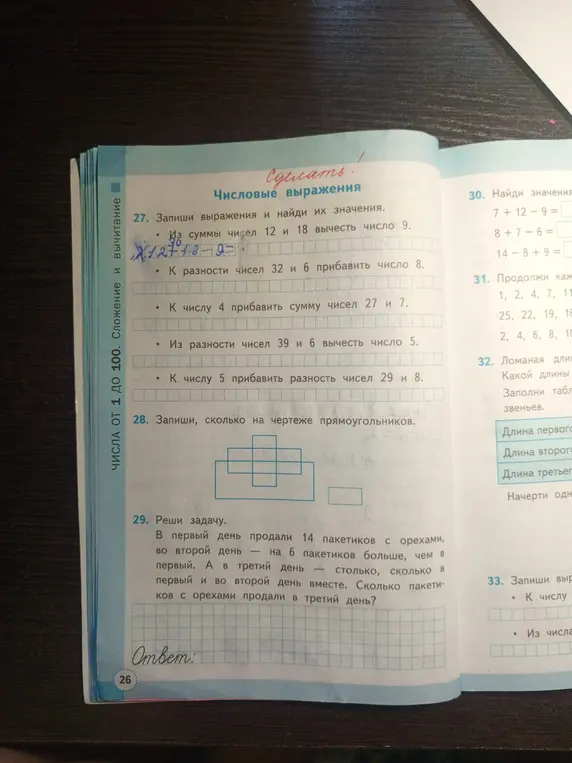 Сделать!
Числовые выражения
27. Запиши выражения и найди их значения.
• Из суммы чисел 12 и 18 вычесть число 9.
30
12+18-9=
• К разности чисел 32 и 6 прибавить число 8.
• К числу 4 прибавить сумму чисел 27 и 7.
• Из разности чисел 39 и 6 вычесть число 5.
• К числу 5 прибавить разность чисел 29 и 8.
28. Запиши, сколько на чертеже прямоугольников.
29. Реши задачу.
В первый день продали 14 пакетиков с орехами,
во второй день — на 6 пакетиков больше, чем в
первый. А в третий день — столько, сколько в
первый и во второй день вместе. Сколько пакети-
ков с орехами продали в третий день?
Ответ:
26
ЧИСЛА ОТ 1 ДО 100. Сложение и вычитание
30. Найди значения
7 + 12 − 9 =
8 + 7 − 6 =
14 − 8 + 9 =
31. Продолжи
1, 2, 4, 7, 11
25, 22, 19,
2, 4, 6, 8,
32. Ломаная
Какой длины
Заполни
звеньев.
Длина первого
Длина второго
Длина третьего
Начерти
33. Запиши
• К числу
• Из числа